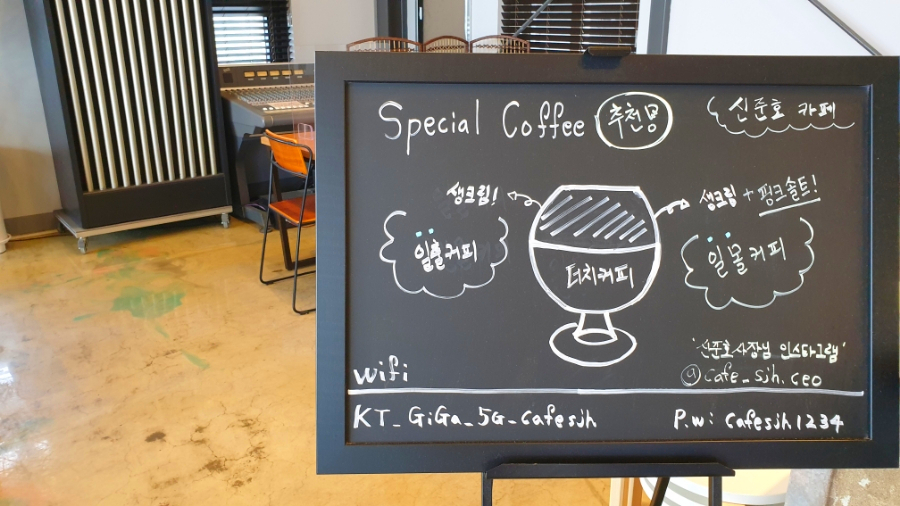 Special Coffee 추천용
신준호 카페
생크림!
생크림 + 핑크솔트!
일출커피
더치커피
일몰커피
'신준호사장님 인스타그램'
@cafe_sjh.ceo
wifi
KT_GiGa_5G_cafesjh
P.w: cafesjh1234